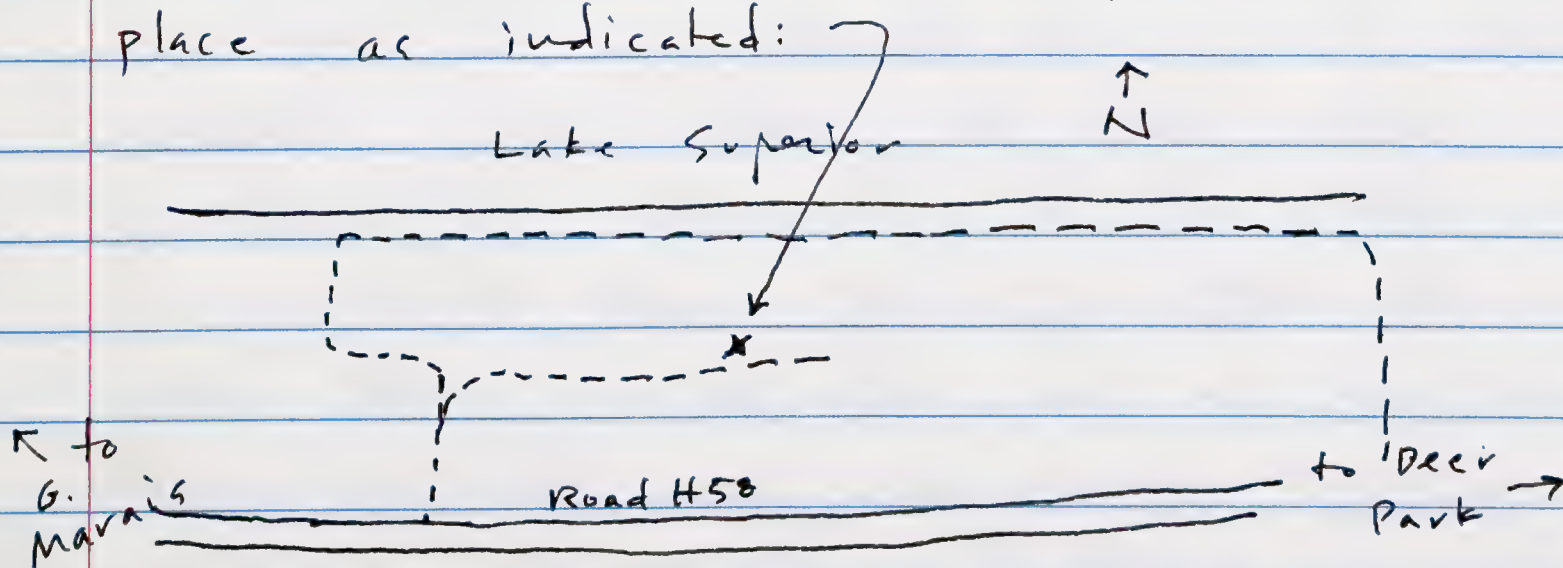 place as indicated:
↑
N
Lake Superior
x
↖ to
G.
Marais
Road H58
to Deer
Park →